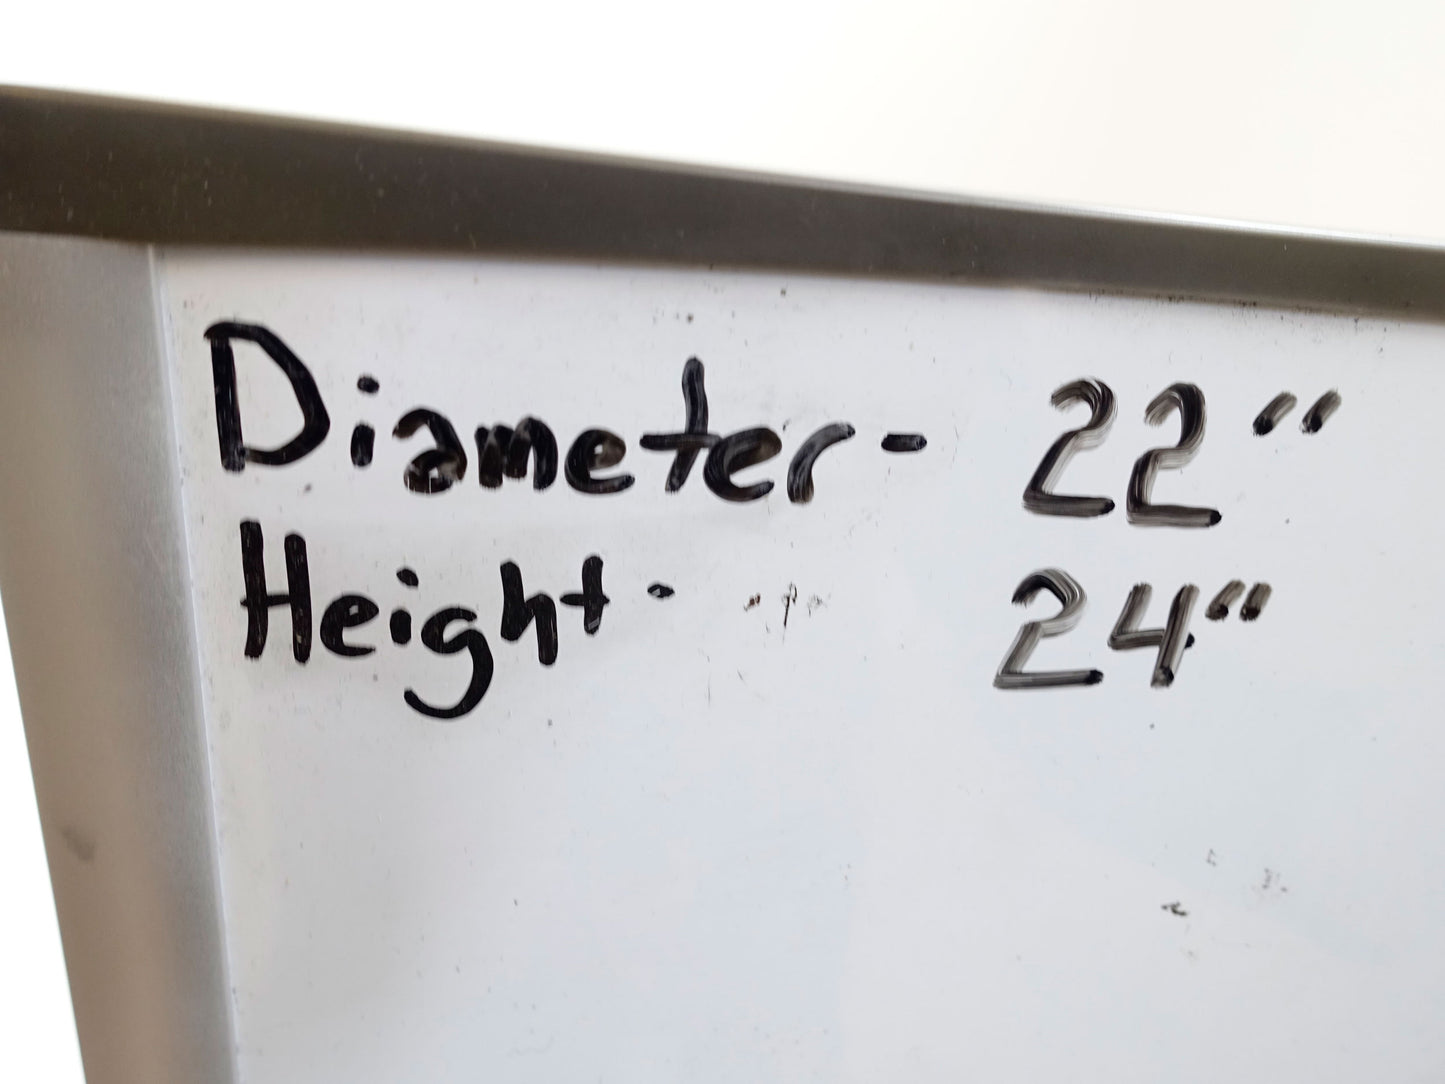 Diameter- 22"
Height- 24"